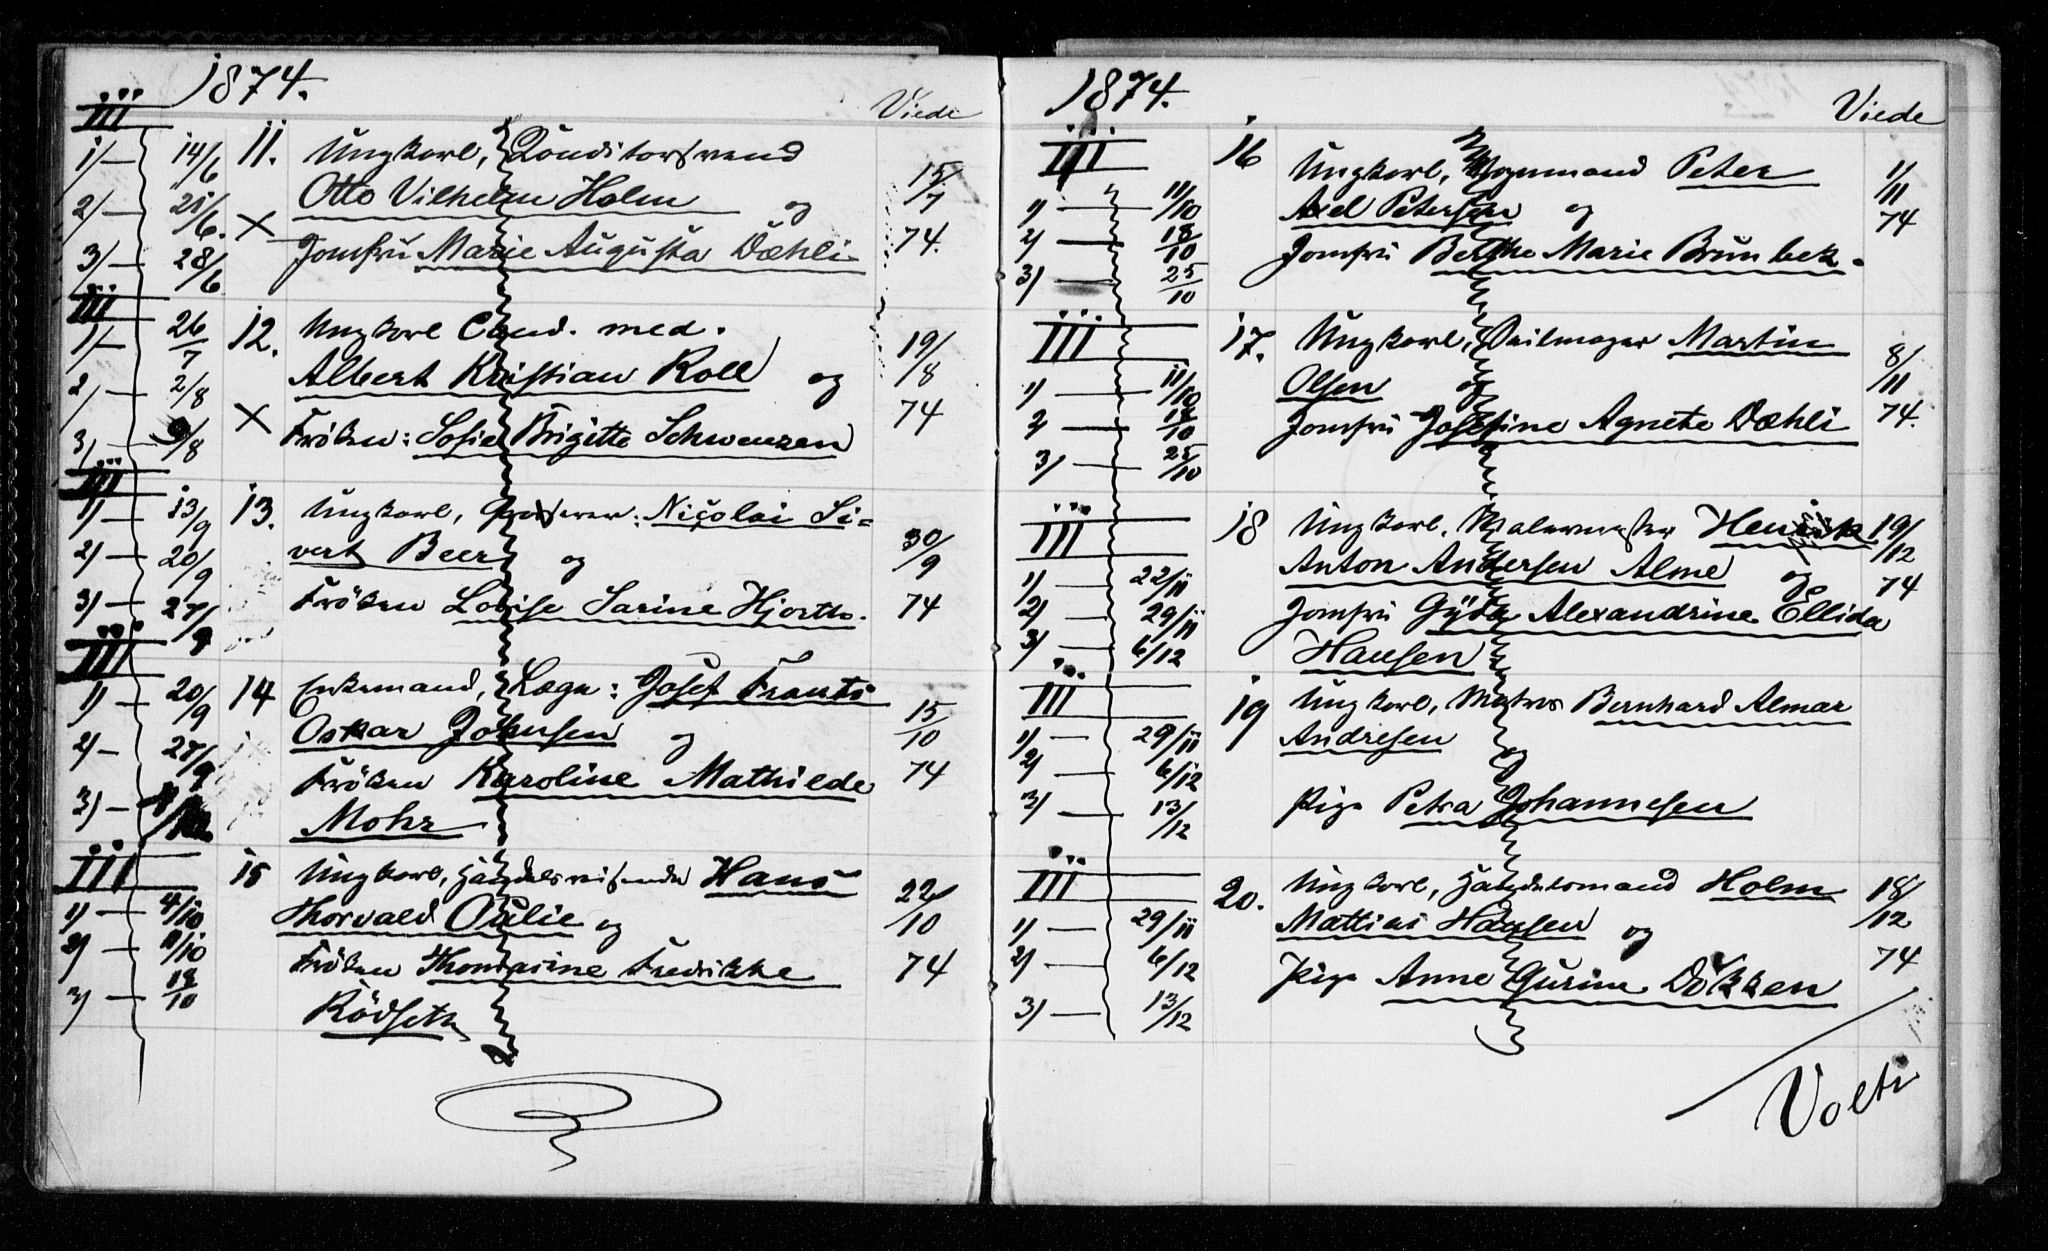 1874.
Viede
III
1) — 14/6 11. Ungkarl, Konditorsvend
Otto Vilhelm Holm og 15/7
2) — 21/6.
Jomfru Marie Augusta Dæhli 74.
3) — 28/6
III
1) — 26/7 12. Ungkarl Cand. med.
Albert Kristian Roll og 19/8
2) — 2/8
Fröken: Sofie Brigitte Schwenzen 74
3) — 9/8
III
1) — 13/9 13. Ungkarl, Grosserer: Nicolai Si-
2) — 20/9 vert Beer og 30/9
3) — 27/9 Fröken Lovise Sarine Hjorth. 74
III
1) — 20/9 14 Enkemand, Læge: Josef Frants
Oskar Johnsen og 15/10
2) — 27/9
Fröken Karoline Mathilde 74
3) —
Mohr
III
15 Ungkarl, Handelsreisende Hans
1) — 4/10 Thorvald Oulie og 22/10
2) — 11/10 Fröken Thomasine Fredrikke 74
3) — 18/10
Rödseth
1874.
Viede
III
16 Ungkarl, Vognmand Peter 1/11
1) — 11/10 Axel Petersen og 74
2) — 18/10 Jomfru Berthe Marie Brunbek.
3) — 25/10
III
17. Ungkarl, Seilmager Martin 8/11
1) — 11/10 Olsen og
2) — 18/10 Jomfru Josefine Agnete Dæhli 74.
3) — 25/10
III
18 Ungkarl, Malermester Henrik 19/12
1) — 22/11 Anton Andersen Alme og 74
2) — 29/11 Jomfru Gyda Alexandrine Ellida
3) — 6/12 Hansen
III
19 Ungkarl, Matros Bernhard Almar
1) — 29/11 Andresen og
2) — 6/12
3) — 13/12 Pige Petra Johannesen
III
20. Ungkarl, Handelsmand Holm 18/12
1) — 29/11 Mattias Hansen og
2) — 6/12 Pige Anne Gurine Dokken 74
3) — 13/12
Volti